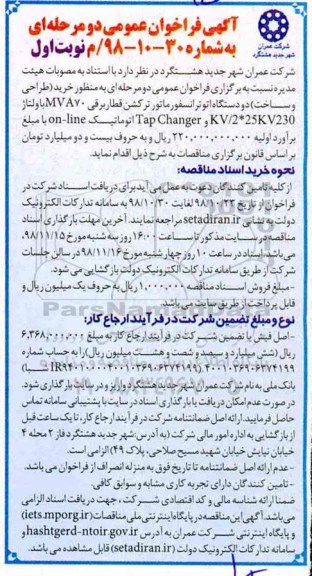 آگهی فراخوان عمومی دو مرحله ای
به شماره ۳۰-۱۰-۹۸/م نوبت اول
شرکت عمران
شهر جدید هشتگرد
شرکت عمران شهر جدید هشتگرد در نظر دارد با استناد به مصوبات هیئت
مدیره نسبت به برگزاری فراخوان عمومی دو مرحله ای به منظور خرید (طراحی
و ساخت) دو دستگاه اتوترانسفورماتور ترکشن قطار برقی MVA۷۰ با ولتاژ
KV/2*25KV230 و Tap Changer اتوماتیک on-line با مبلغ
برآورد اولیه ۲۲۰,۰۰۰,۰۰۰,۰۰۰ ریال و به حروف بیست و دو میلیارد تومان
بر اساس قانون برگزاری مناقصات به شرح ذیل اقدام نماید.
نحوه خرید اسناد مناقصه:
از کلیه تامین کنندگان دعوت به عمل می آید برای دریافت اسناد شرکت در
فراخوان از تاریخ ۹۸/۱۰/۲۳ لغایت ۹۸/۱۰/۳۰ به سامانه تدارکات الکترونیک
دولت به نشانی setadiran.ir مراجعه نمایند. آخرین مهلت بارگذاری اسناد
مناقصه در سایت مذکور تا ساعت ۱۶:۰۰ روز سه شنبه مورخ ۹۸/۱۱/۱۵
می باشد. اسناد در ساعت ۱۰ روز چهارشنبه مورخ ۹۸/۱۱/۱۶ در سالن جلسات
شرکت از طریق سامانه تدارکات الکترونیک دولت بازگشایی می شود.
- مبلغ فروش اسناد مناقصه ۱,۰۰۰,۰۰۰ ریال به حروف یک میلیون ریال و
قابل پرداخت از طریق سایت می باشد.
نوع و مبلغ تضمین شرکت در فرآیند ارجاع کار:
- اصل فیش یا تضمین شرکت در فرآیند ارجاع کار به مبلغ ۶,۳۶۸,۰۰۰,۰۰۰
ریال (شش میلیارد و سیصد و شصت و هشت میلیون ریال) را به حساب شماره
بانک ملی به نام شرکت عمران شهر جدید هشتگرد واریز و در سایت بارگذاری شود.
در صورت عدم امکان دریافت یا بارگذاری اسناد در سایت با پشتیبانی سامانه تماس
حاصل فرمایید. ارائه اصل ضمانتنامه شرکت در فرآیند ارجاع کار، تا یک ساعت قبل
از بازگشایی به اداره امور مالی شرکت (به آدرس: شهر جدید هشتگرد فاز ۲ محله ۴
خیابان نیایش خیابان شهید مسیح صلاحی، پلاک ۴۹) الزامی است.
- عدم ارائه اصل ضمانتنامه تا تاریخ فوق به منزله انصراف از فراخوان می باشد.
- تامین کنندگان دارای تجربه کاری مشابه و سوابق کافی.
ضمنا ارائه شناسه ملی و کد اقتصادی شرکت، جهت دریافت اسناد الزامی
می باشد. آگهی این مناقصه در پایگاه اینترنتی ملی مناقصات (iets.mporg.ir)
و پایگاه اینترنتی شرکت عمران به آدرس hashtgerd-ntoir.gov.ir و
سامانه تدارکات الکترونیک دولت (setadiran.ir) قابل مشاهده می باشد.